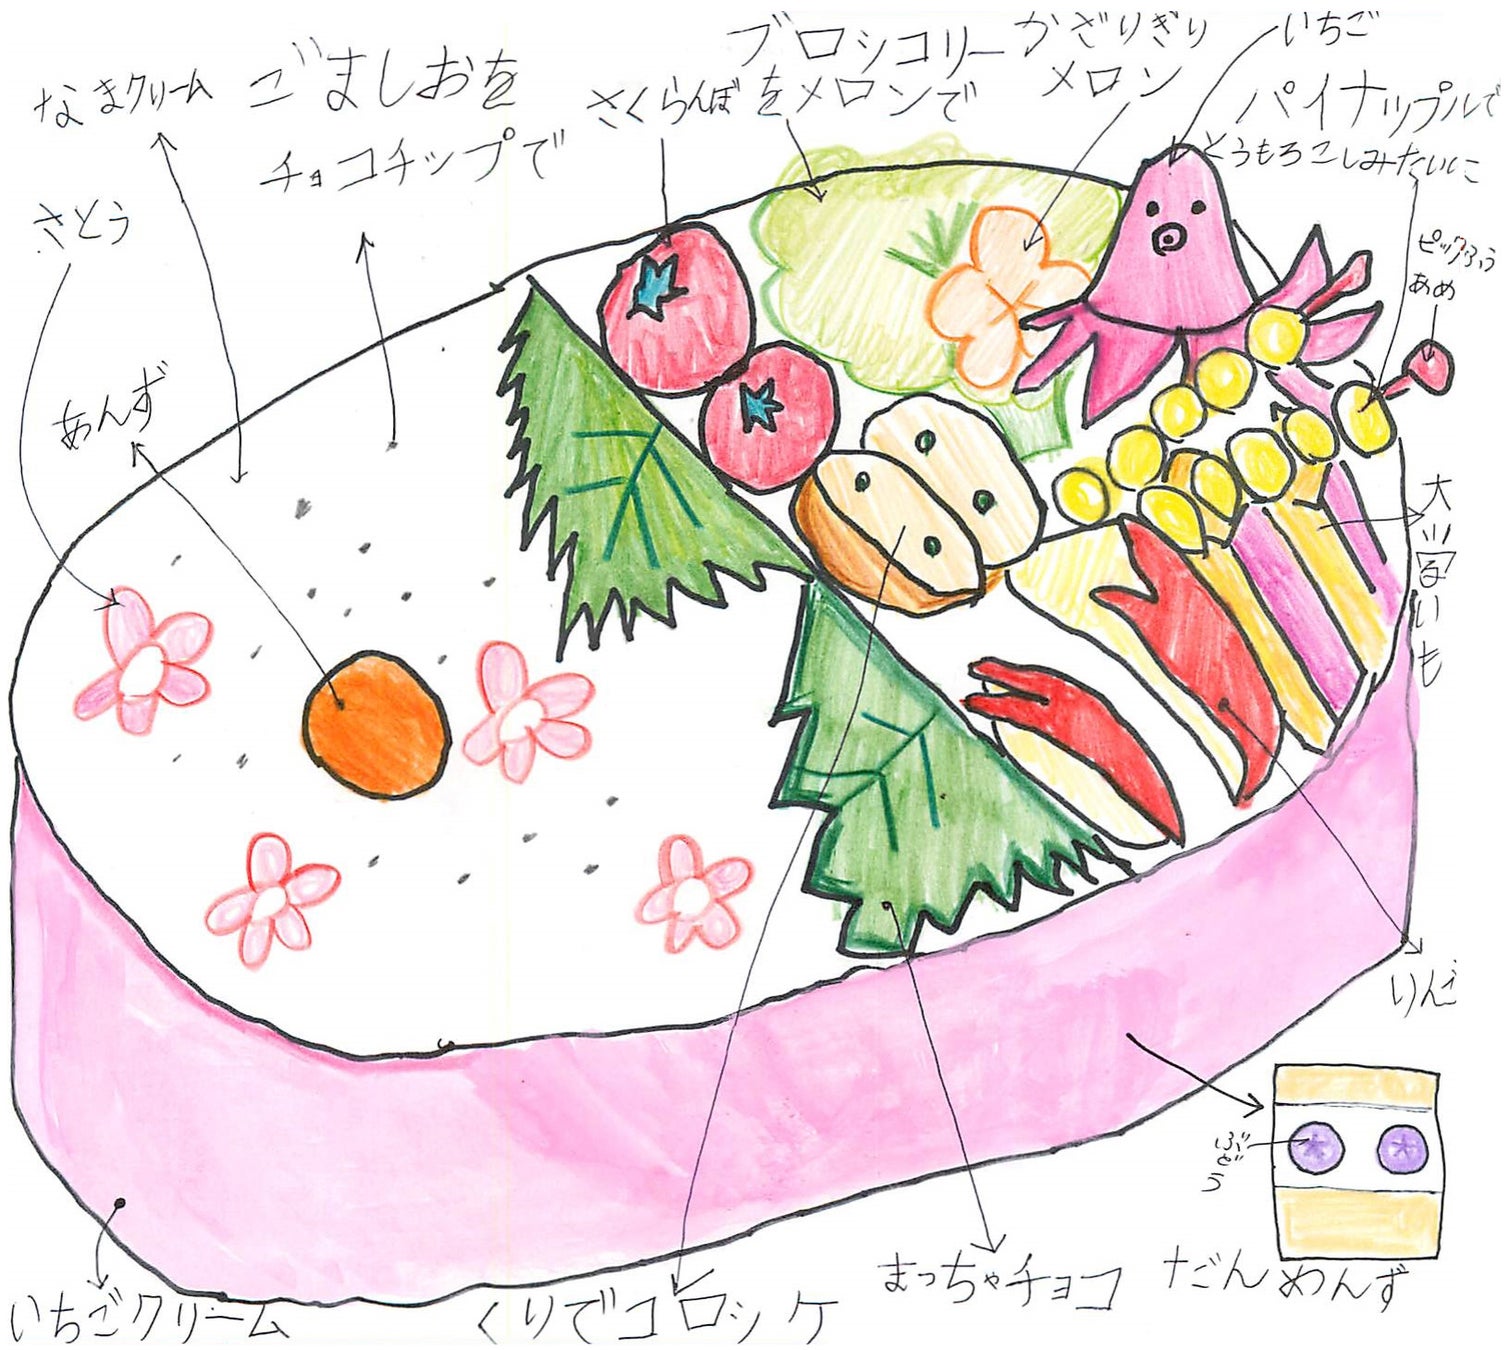 なまクリーム
ごましおを
チョコチップで
さくらんぼ
ブロッコリー
をメロンで
かざりぎり
メロン
いちご
パイナップルで
とうもろこしみたいに
さとう
ピックふう
あめ
あんず
大学いも
りんご
ぶどう
いちごクリーム
くりでコロッケ
まっちゃチョコ
だんめんず